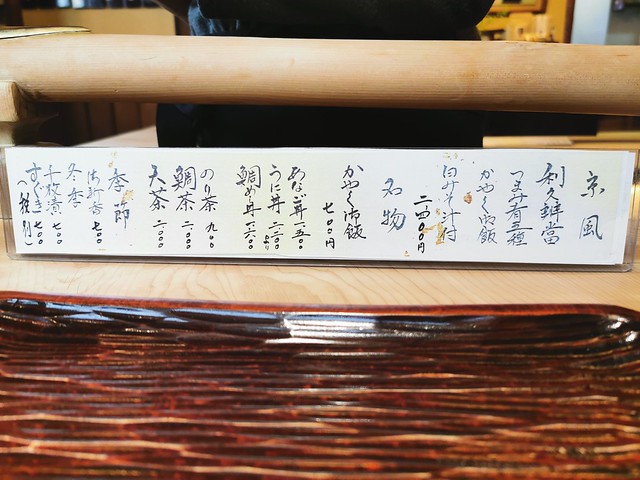 京風
利久辨當
つまみ肴三種
かやく御飯
白みそ汁付
二四〇〇円
名物
かやく御飯
七〇〇円
あなご丼 一五〇〇
うに丼 二二〇〇より
鯛めし丼 一六〇〇
のり茶 九〇〇
鯛茶 二〇〇〇
天茶 二〇〇〇
季節
御新香 七〇〇
冬季
千枚漬 七〇〇
すぐき 七〇〇
(税別)